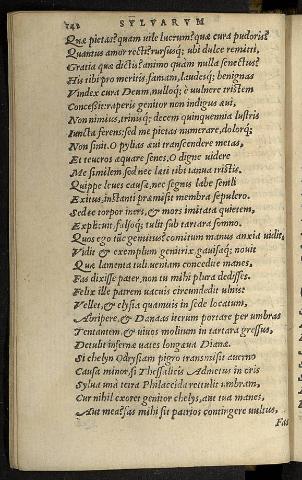 142 SYLVARVM
Quæ pietas? quam uile lucrum? quæ cura pudoris?
Quantus amor recti? rursusq; ubi dulce remitti,
Gratia quæ dictis? animo quàm nulla senectus?
His tibi pro meritis, famam, laudesq; benignas
Vindex cura Deum, nulloq; è uulnere tristem
Concessit: raperis genitor non indigus æui,
Non nimius, trinisq; decem quinquennia lustris
Iuncta ferens: sed me pietas numerare, dolorq;
Non sinit. O pylias æui transcendere metas,
Et teucros æquare senes, O digne uidere
Me similem, sed nec lœti tibi ianua tristis.
Quippe leues causæ, nec segnis labe senili
Exitus, instanti præmisit membra sepulcro.
Sed te torpor iners, & mors imitata quietem,
Explicuit, falsoq; tulit sub tartara somno.
Quos ego tũc gemitus? comitum manus anxia uidit,
Vidit & exemplum genitrix, gauisaq; nouit
Quæ lamenta tuli, ueniam concedite manes,
Fas dixisse pater, non tu mihi plura dedisses.
Felix ille patrem uacuis circundedit ulnis:
Vellet, & elysia quamuis in sede locatum,
Abripere, & Danaas iterum portare per umbras
Tentantem & uiuos molitum in tartara gressus,
Detulit infernæ uates longæua Dianæ.
Si chelyn Odrysiam pigro transmisit auerno
Causa minor, si Thessalicis Admetus in oris
Sylua unã tetra Philaceida rectulit umbram,
Cur nihil exoret genitor chelys, aut tua manes,
Aut mea? fas mihi sit patrios contingere uultus,
Fas